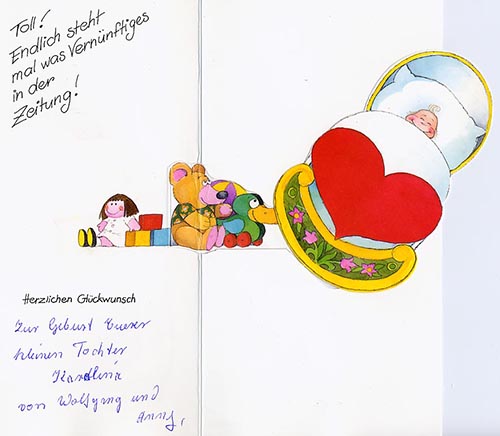 Toll!
Endlich steht
mal was Vernünftiges
in der
Zeitung!
Herzlichen Glückwunsch
Zur Geburt Eurer
kleinen Tochter
von Wolfgang und